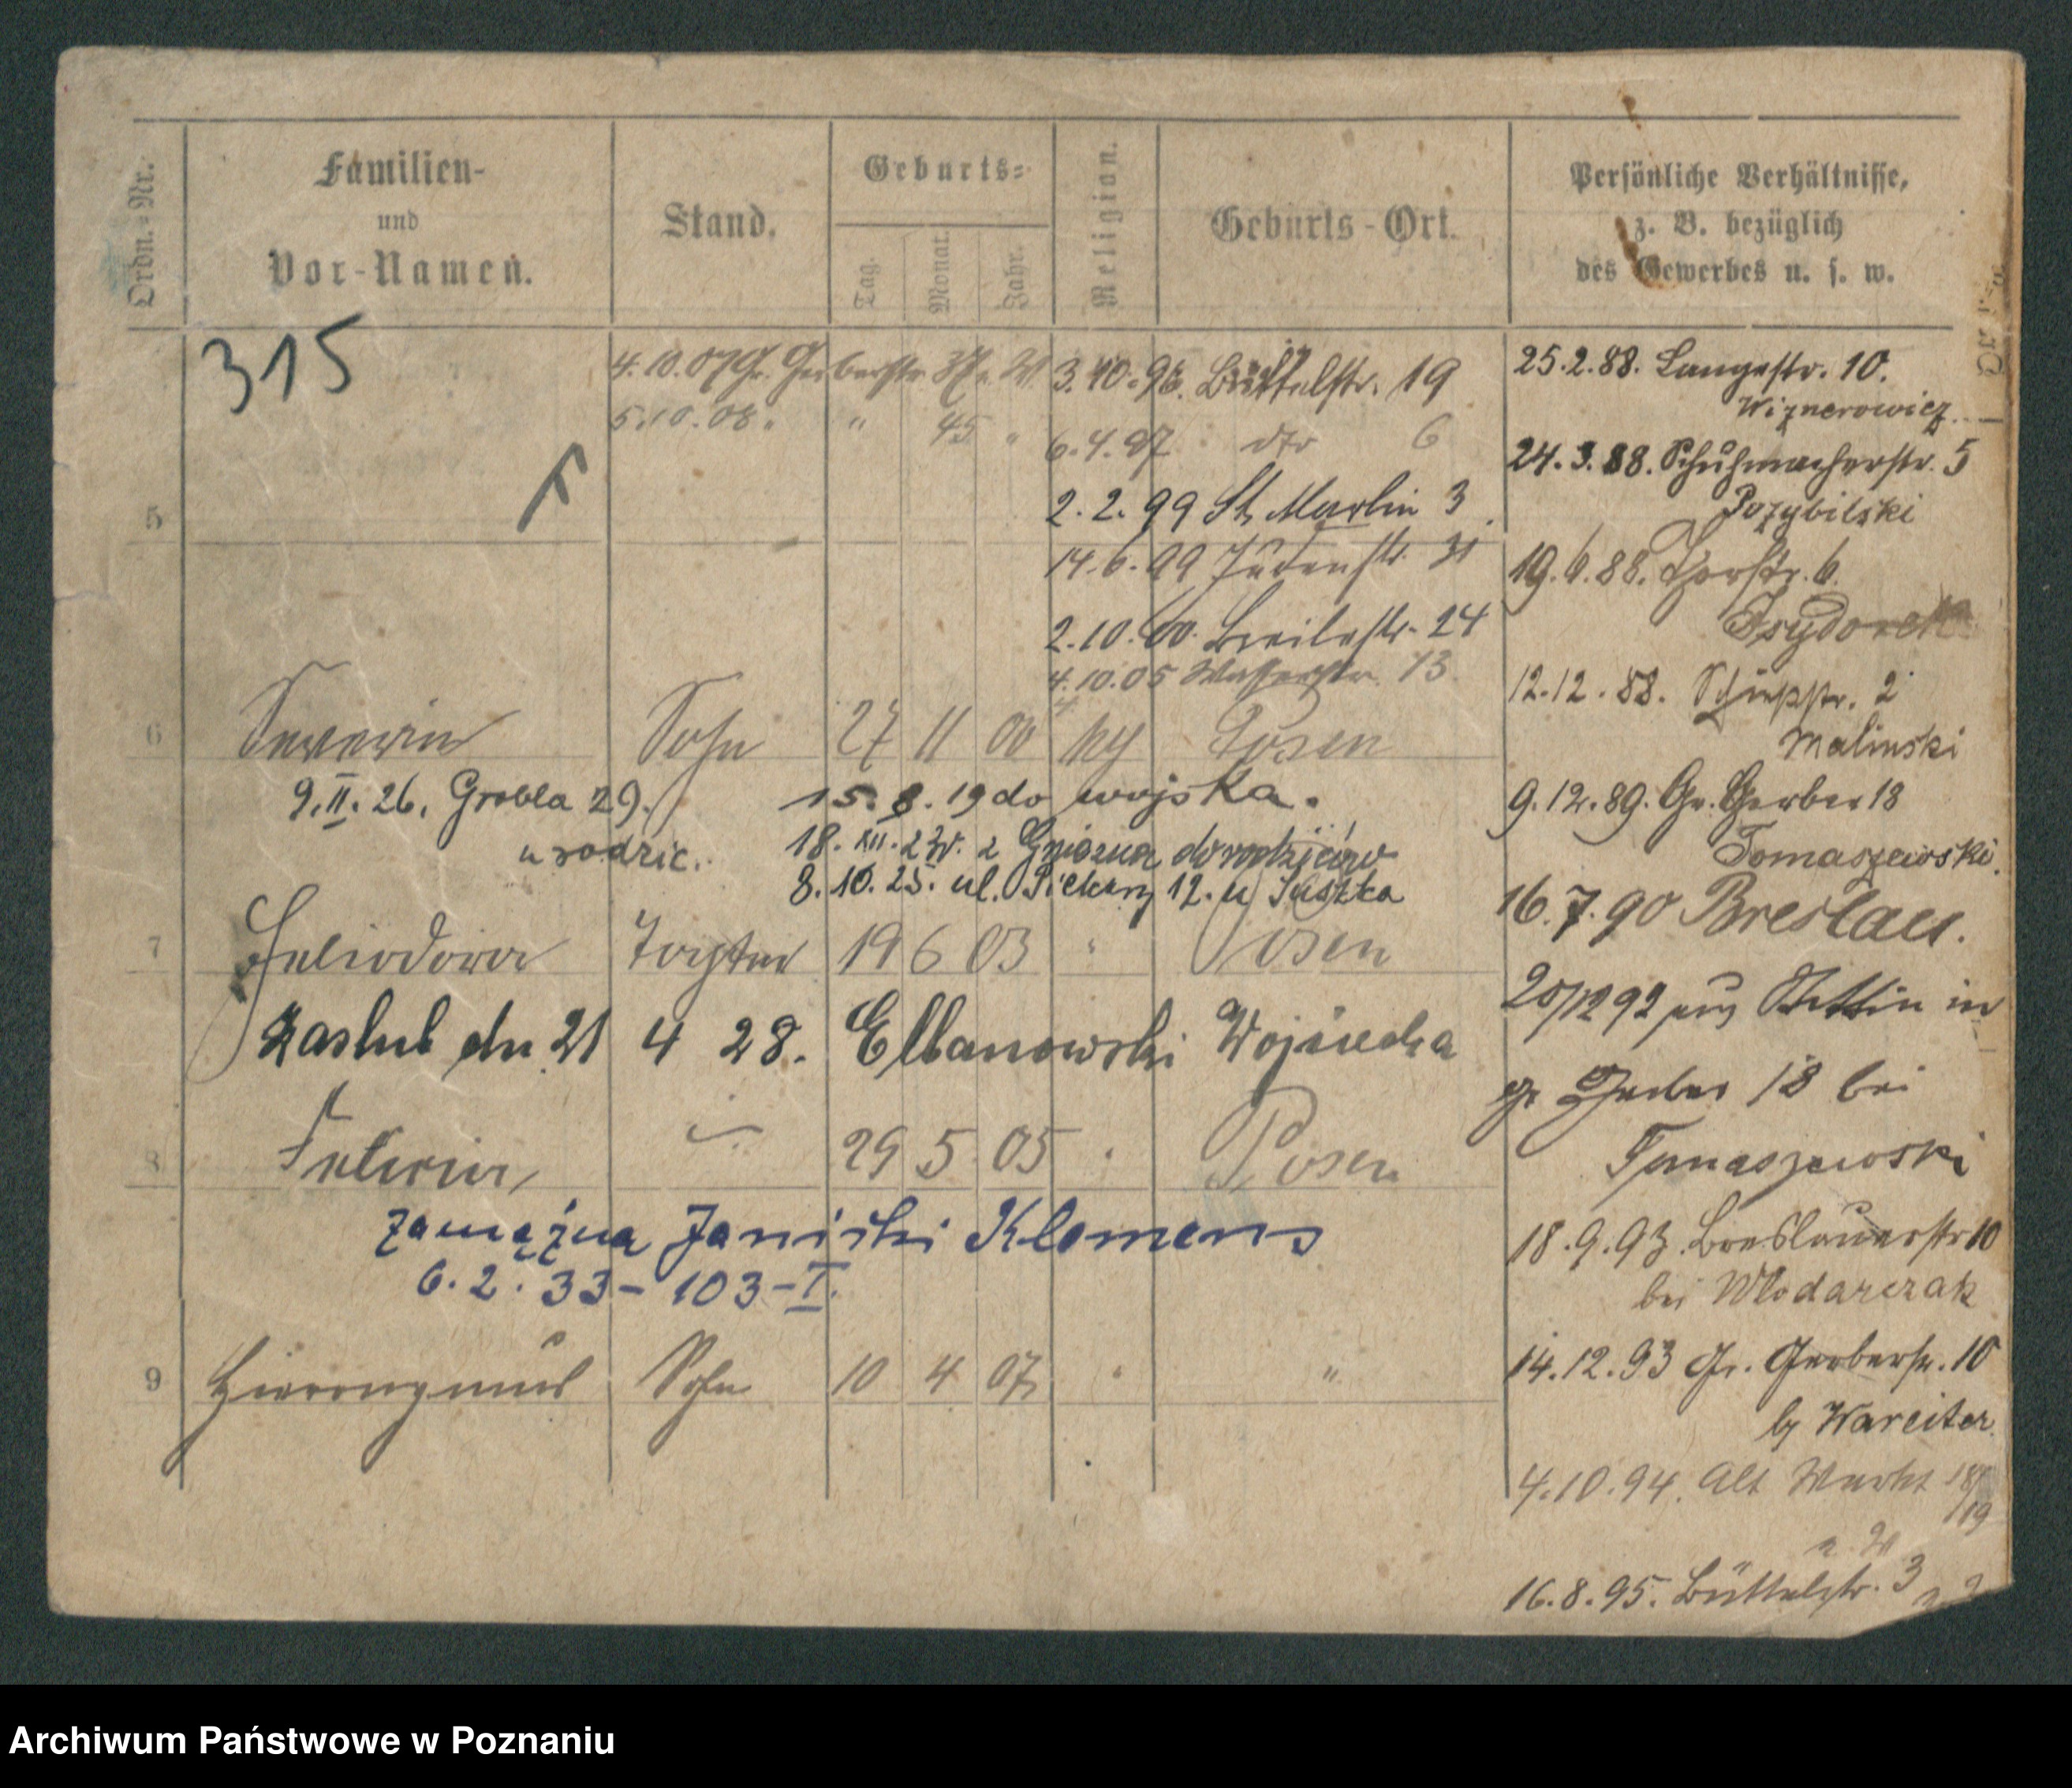 Ordn.-Nr.
Familien-
und
Vor-Namen.
Stand.
Geburts-
Tag.
Monat.
Jahr.
Religion.
Geburts-Ort.
Persönliche Verhältnisse,
z. B. bezüglich
des Gewerbes u. s. w.
315
4.10.07 Gr. Gerberstr. 37
3.10.96. Büttelstr. 19
5.10.08 " " 45 "
6.4.97 dto 6
2.2.99 St. Martin 3
5
14.6.99 Judenstr. 31
2.10.00. Breitestr. 24
4.10.05 Wasserstr. 13
6 Severin Sohn 27 11 00 Posen
9.II.26. Grobla 29.
u rodzic.
15.8.19 do wojska.
18.XII.23 r. z Gniezna do rodziców
8.10.25. ul. Piekary 12. u Suszka
7 Heliodora Tochter 19 6 03 " Posen
Zaślub dn 21 4 28. Elbanowski Wojciecha
8 Felicia 29 5 05 " Posen
zamężna Janicki Klemens
6.2.33-103-I.
9 Hieronymus Sohn 10 4 07 " "
25.2.88. Langestr. 10.
Wiznerowicz
24.3.88. Schuhmacherstr. 5
Pozybilski
19.6.88. Torstr. 6.
Isydorek
12.12.88. Schießstr. 2
Malinski
9.12.89. Gr. Gerber 18
Tomaszewski.
16.7.90 Breslau.
20/12 92 aus Stettin in
gr Gerber 18 bei
Tomaszewski
18.9.93. Breslauerstr 10
bei Wlodarczak
14.12.93 Gr. Gerberstr. 10
by Wareiter.
4.10.94. Alt Markt 18/19
16.8.95. Büttelstr. 3
Archiwum Państwowe w Poznaniu